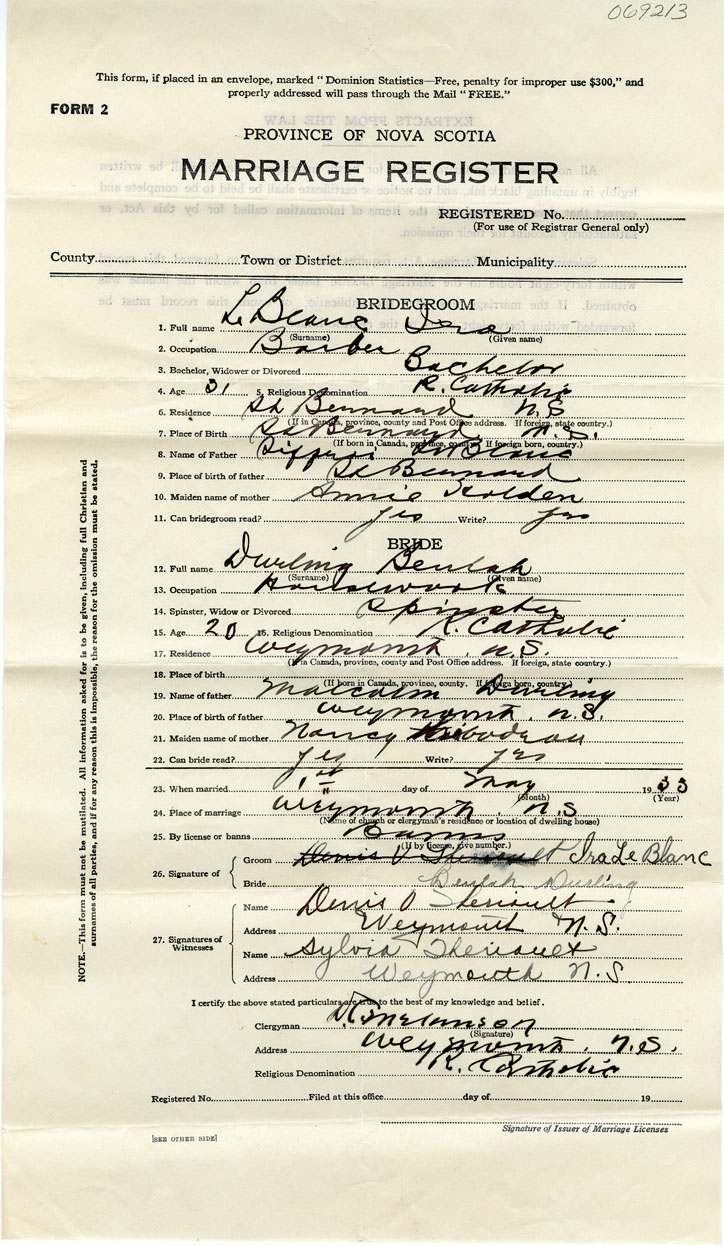 069213
This form, if placed in an envelope, marked "Dominion Statistics—Free, penalty for improper use $300," and
properly addressed will pass through the Mail "FREE."
FORM 2
PROVINCE OF NOVA SCOTIA
MARRIAGE REGISTER
REGISTERED No.
(For use of Registrar General only)
County Town or District Municipality
BRIDEGROOM
1. Full name Le Blanc Ira
(Surname) (Given name)
2. Occupation Barber
3. Bachelor, Widower or Divorced Bachelor
4. Age 31 5. Religious Denomination R. Catholic
6. Residence St Bernard N.S
(If in Canada, province, county and Post Office address. If foreign, state country.)
7. Place of Birth St Bernard, N.S.
(If born in Canada, province, county. If foreign born, country.)
8. Name of Father LeBlanc
9. Place of birth of father St Bernard
10. Maiden name of mother Annie
11. Can bridegroom read? yes Write? yes
BRIDE
12. Full name Durling Beulah
(Surname) (Given name)
13. Occupation Housework
14. Spinster, Widow or Divorced Spinster
15. Age 20 16. Religious Denomination R. Catholic
17. Residence Weymouth. N.S.
(If in Canada, province, county and Post Office address. If foreign, state country.)
18. Place of birth
(If born in Canada, province, county. If foreign born, country.)
19. Name of father Malcolm Durling
20. Place of birth of father Weymouth. N.S.
21. Maiden name of mother Nancy
22. Can bride read? yes Write? yes
23. When married 1st day of May 1933
(Month) (Year)
24. Place of marriage Weymouth. N.S
(Name of church or clergyman's residence or location of dwelling house)
25. By license or banns Banns
(If by license, give number.)
26. Signature of
Groom Denis O Theriault Ira Le Blanc
Bride Beulah Durling
27. Signatures of Witnesses
Name Denis O Theriault
Address Weymouth N.S.
Name Sylvia Theriault
Address Weymouth N.S.
I certify the above stated particulars are true to the best of my knowledge and belief.
Clergyman Melanson
(Signature)
Address Weymouth. N.S.
Religious Denomination R. Catholic
Registered No. Filed at this office day of 19
Signature of Issuer of Marriage Licenses
[SEE OTHER SIDE]
NOTE.—This form must not be mutilated. All information asked for is to be given, including full Christian and
surnames of all parties, and if for any reason this is impossible, the reason for the omission must be stated.